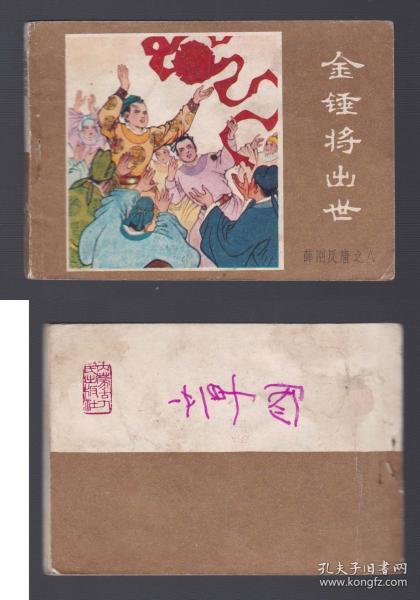 金锤将出世
薛刚反唐之八
内蒙古人
民出版社
孔夫子旧书网
www.kongfz.com